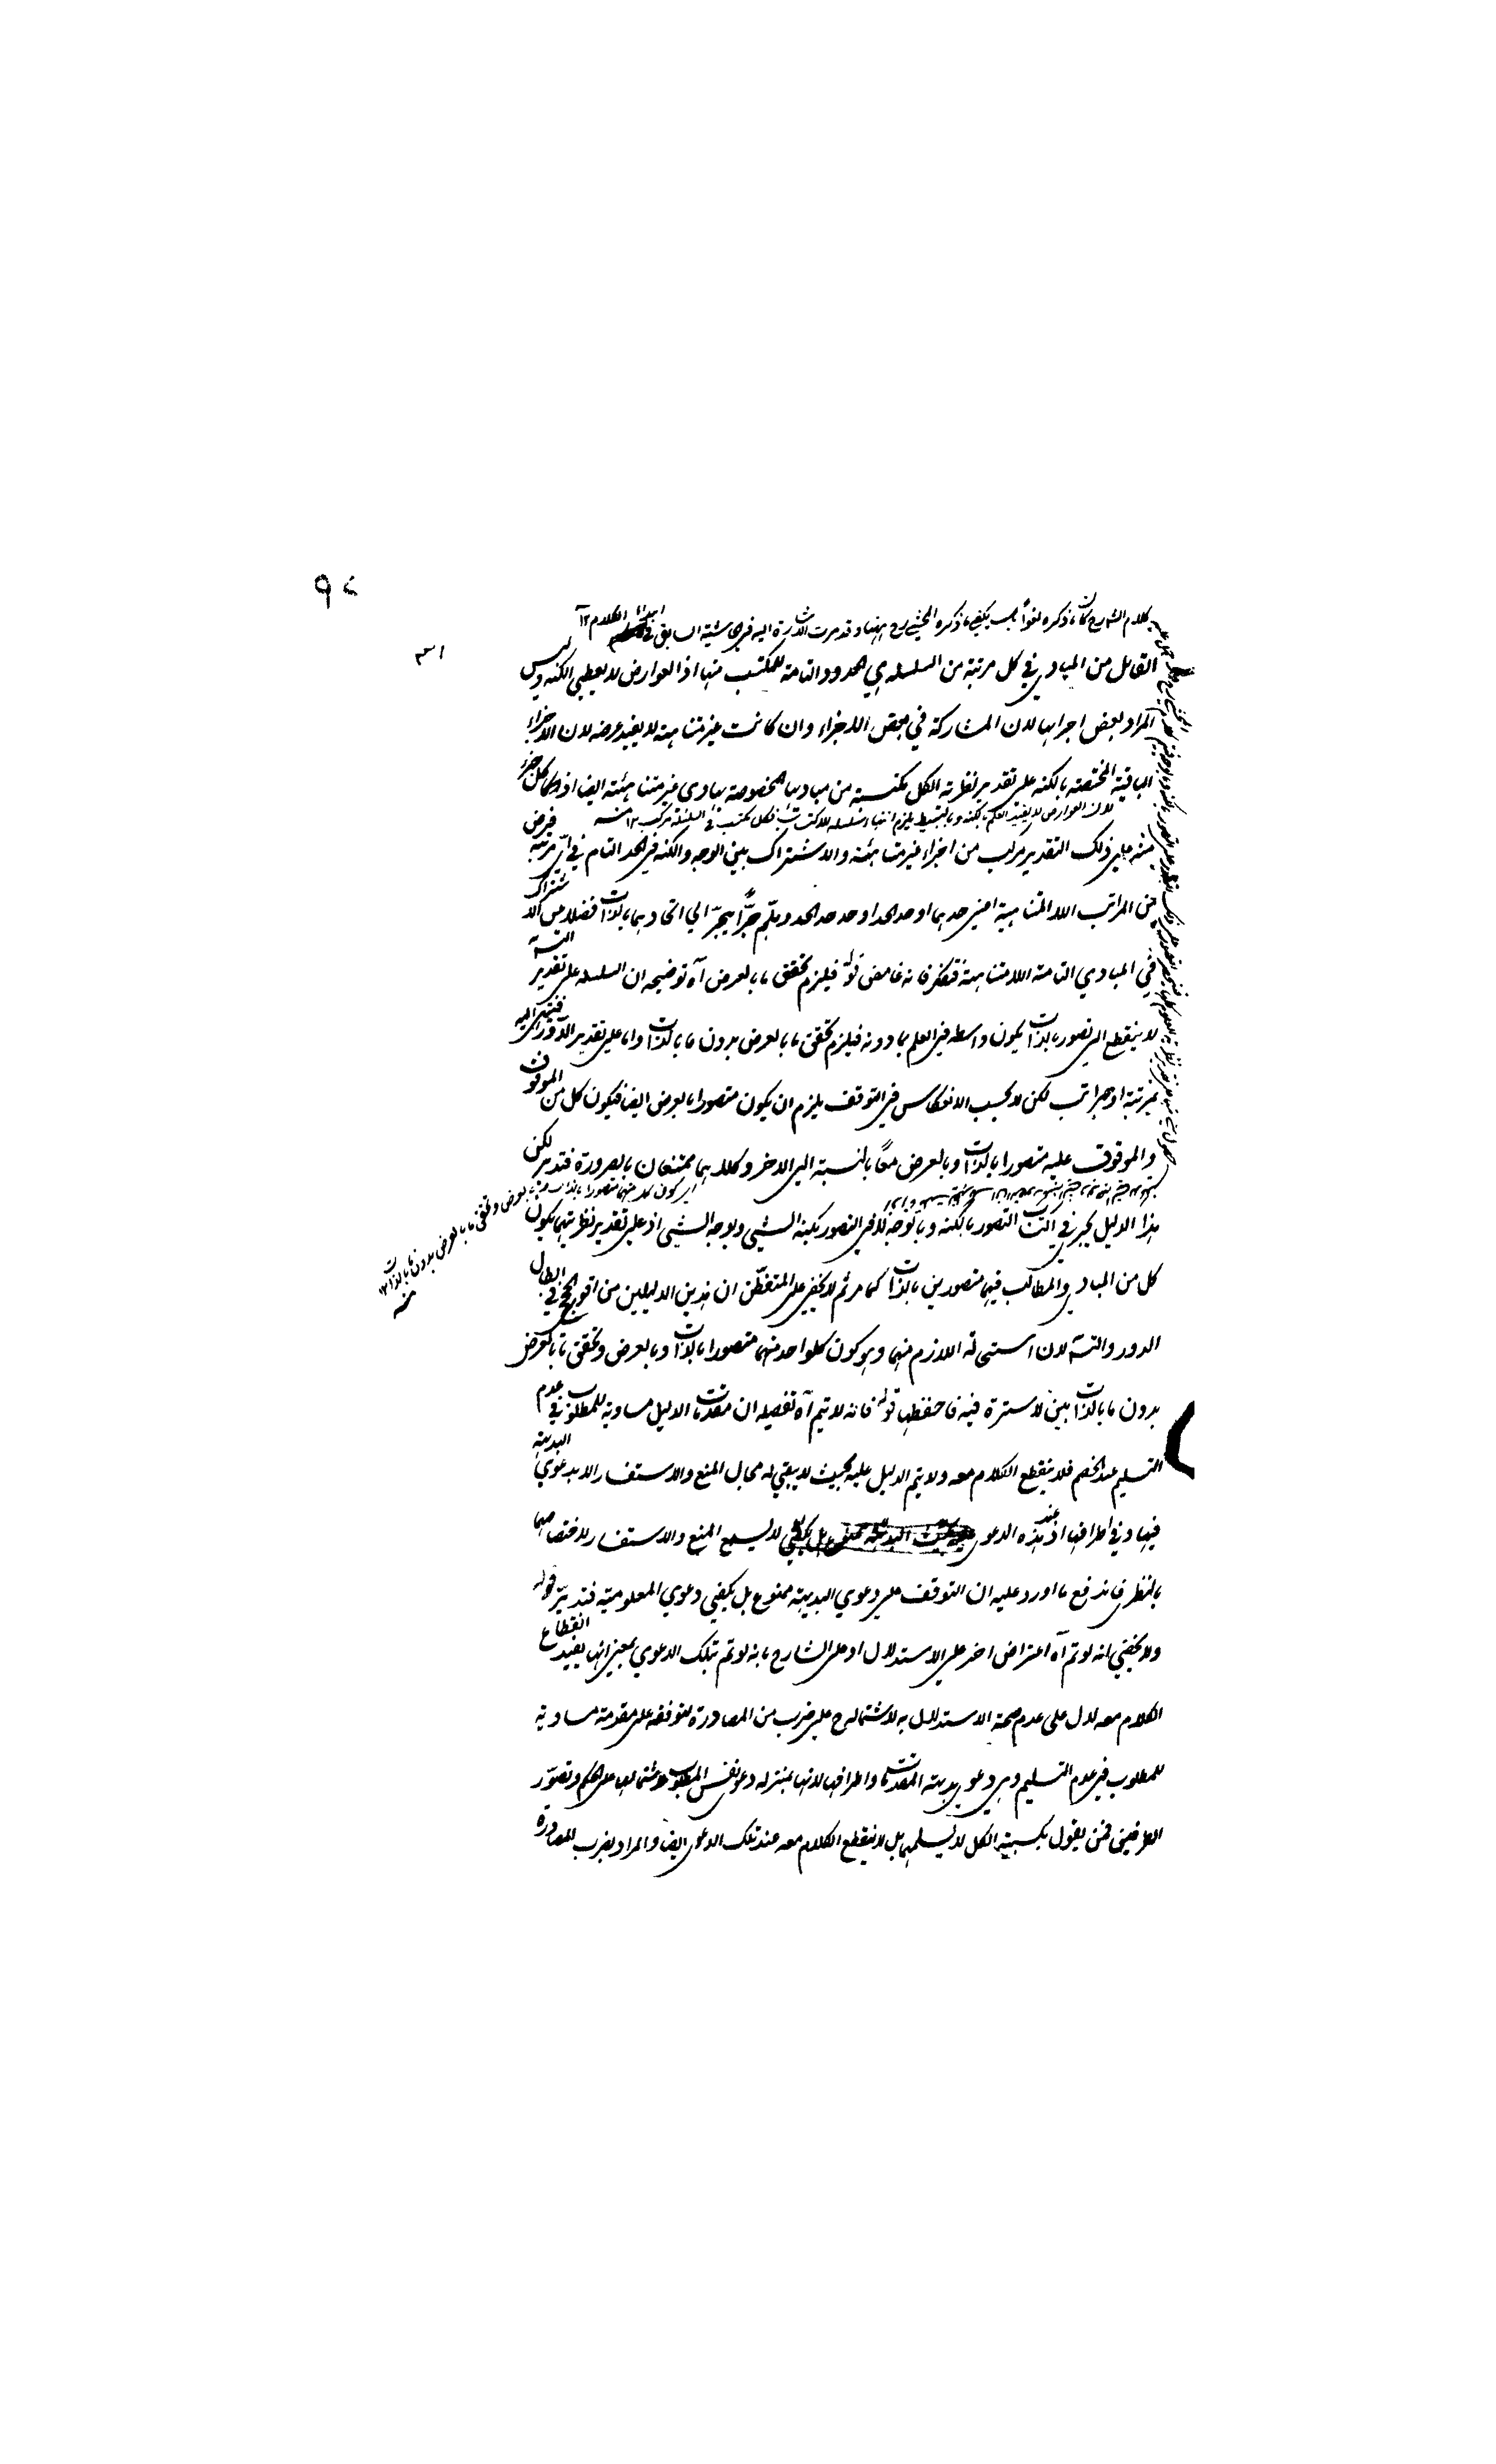 ٩٧
كلام الشارح كان ما ذكره لغواً بل يكفي ما ذكره المحشي رح ههنا وقد مرت الاشارة اليه في الحاشية السابق في ابتداء الكلام ١٢
القائل من المبادي في كل مرتبة من السلسلة هي الحدود التامة للمكتسب منها اذ العوارض لا يعطي الكنه وليس
المراد بعض اجزائها لان المشاركة في بعض الاجزاء وان كانت غير متناهية لا يفيد غرضه لان الاجزاء
الباقية المختصة بالكنه على تقدير نظرية الكل مكتسبة من مباديها المخصوصة بمبادي غير متناهية ايضا اذ كل جزء
لان العوارض لا يفيد العلم بالكنه وبالبسيط يلزم انتهاء سلسلة الاكتساب فكل مكتسب في السلسلة مركب ١٢ منه
منه على ذلك التقدير مركب من اجزاء غير متناهية والاشتراك بين الوجه والكنه في الحد التام في اي مرتبة فرض
من المراتب اللامتناهية اعني حدهما او حد الحد او حد حد الحد وهلم جرّا ينجرّ الي اتحادهما بالذات فضلا من الاشتراك
في المبادي التامة اللامتناهية فتفكر فانه غامض قوله فيلزم تحقق ما بالعرض آه توضيحه ان السلسلة على تقدير التسه
لا ينقطع الي تصور بالذات يكون واسطه في العلم بما دونه فيلزم تحقق ما بالعرض بدون ما بالذات واما على تقدير الدور فينتهي اليه
بمرتبة او بمراتب لكن لا بحسب الانعكاس في التوقف يلزم ان يكون متصورا بالعرض ايضا فيكون كل من الموقوف
والموقوف عليه متصورا بالذات وبالعرض معًا بالنسبة الي الاخر وكلاهما ممتنعان بالضرورة فتدبر لكن
اي كون كلا منهما متصورا بالذات وبالعرض وتحقق ما بالعرض بدون ما بالذات ١٢ منه
هذا الدليل يجري في اكتساب التصور بالكنه وبالوجه لا في التصور بكنه الشيئ وبوجه الشيئ اذ على تقدير نظريتهما يكون
كل من المبادي والمطالب فيهما متصورين بالذات كما مر ثم لا يخفي على المتفطن ان هذين الدليلين من اقوي الحجج في ابطال
الدور والتسه لان استحالة اللازم منهما وهو كون كلواحد منهما متصورا بالذات وبالعرض وتحقق ما بالعرض
بدون ما بالذات بين لاسترة فيه فاحفظها قوله فانه لا يتم آه تفصيله ان مقدمات الدليل مساوية للمطلوب في عدم
التسليم عند الخصم فلا ينقطع الكلام معه ولا يتم الدليل عليه بحيث لا يبقي له مجال المنع والاستفسار الا بدعوي البديهة
فيها وفي اطرافها اذ عند هذه الدعوي لا يسمع المنع والاستفسار لاختصاصهما
بالنظري فاندفع ما اورد عليه ان التوقف على دعوي البديهة ممنوع بل يكفي دعوي المعلومية فتدبر قوله
ولا يخفي انه لو تم آه اعتراض اخر على الاستدلال او على الشارح بانه لو تم تلك الدعوي بمعني انها يفيد انقطاع
الكلام معه لدل على عدم صحة الاستدلال به لاشتماله ح على ضرب من المصادرة لتوقفه على مقدمة مساوية
للمطلوب في عدم التسليم وهي دعوي بديهة المقدمات واطرافها لانها بمنزلة دعوي نفس المطلوب لاشتمالها على الحكم وتصور
الطرفين فمن يقول بكسبية الكل لا يسلمها بل لا ينقطع الكلام معه عند تلك الدعوي ايضا والمراد بضرب المصادرة